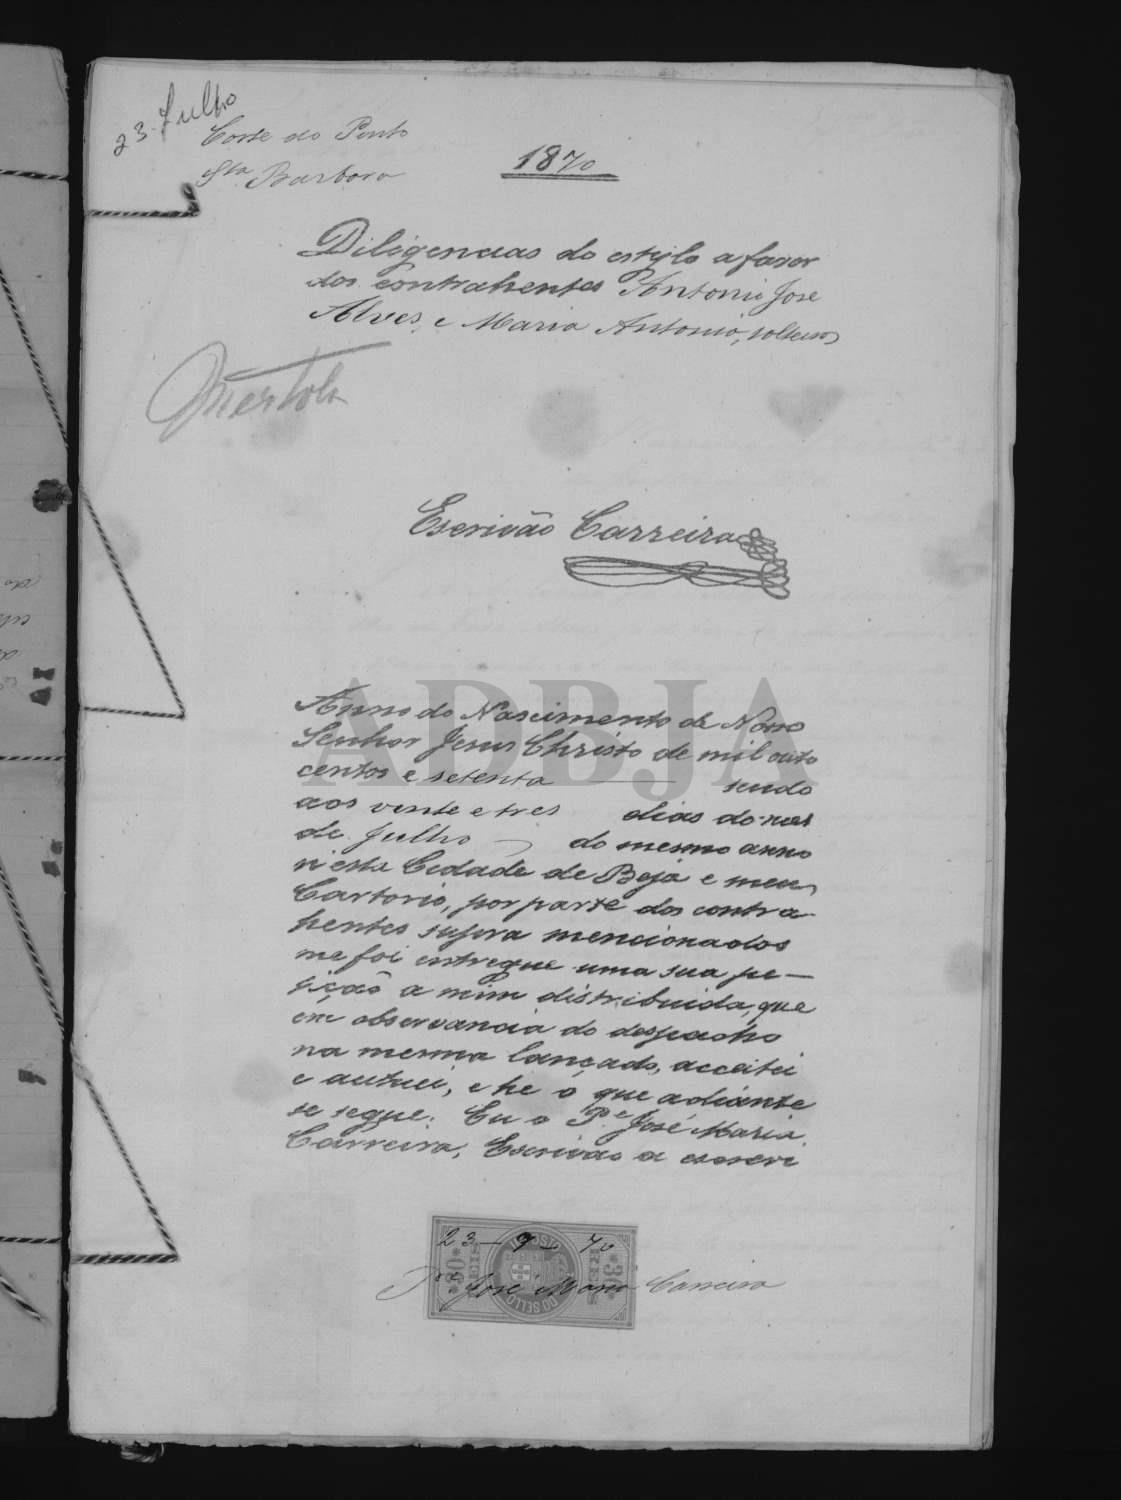 23 Julho
Corte do Pinto
Sta Barbora
1870
Diligencias do estylo a favor
dos contrahentes Antonio Jose
Alves, e Maria Antonia, solteiros
Mertola
Escrivão Carreira
ADBJA
Anno do Nascimento de Nosso
Senhor Jesus Christo de mil outo
centos e setenta sendo
aos vinte e tres dias do mes
de Julho do mesmo anno
n'esta Cidade de Beja e meu
Cartorio, por parte dos contra-
hentes supra mencionados
me foi entregue uma sua pe-
tição a mim distribuida, que
em observancia do despacho
na mesma lançado, acceitei
e autuei, e he o que adiante
se segue. Eu o Pe José Maria
Carreira, Escrivão a escrevi
23-7-70
IMPOSTO DO SELLO
30 REIS
Pe José Maria Carreira